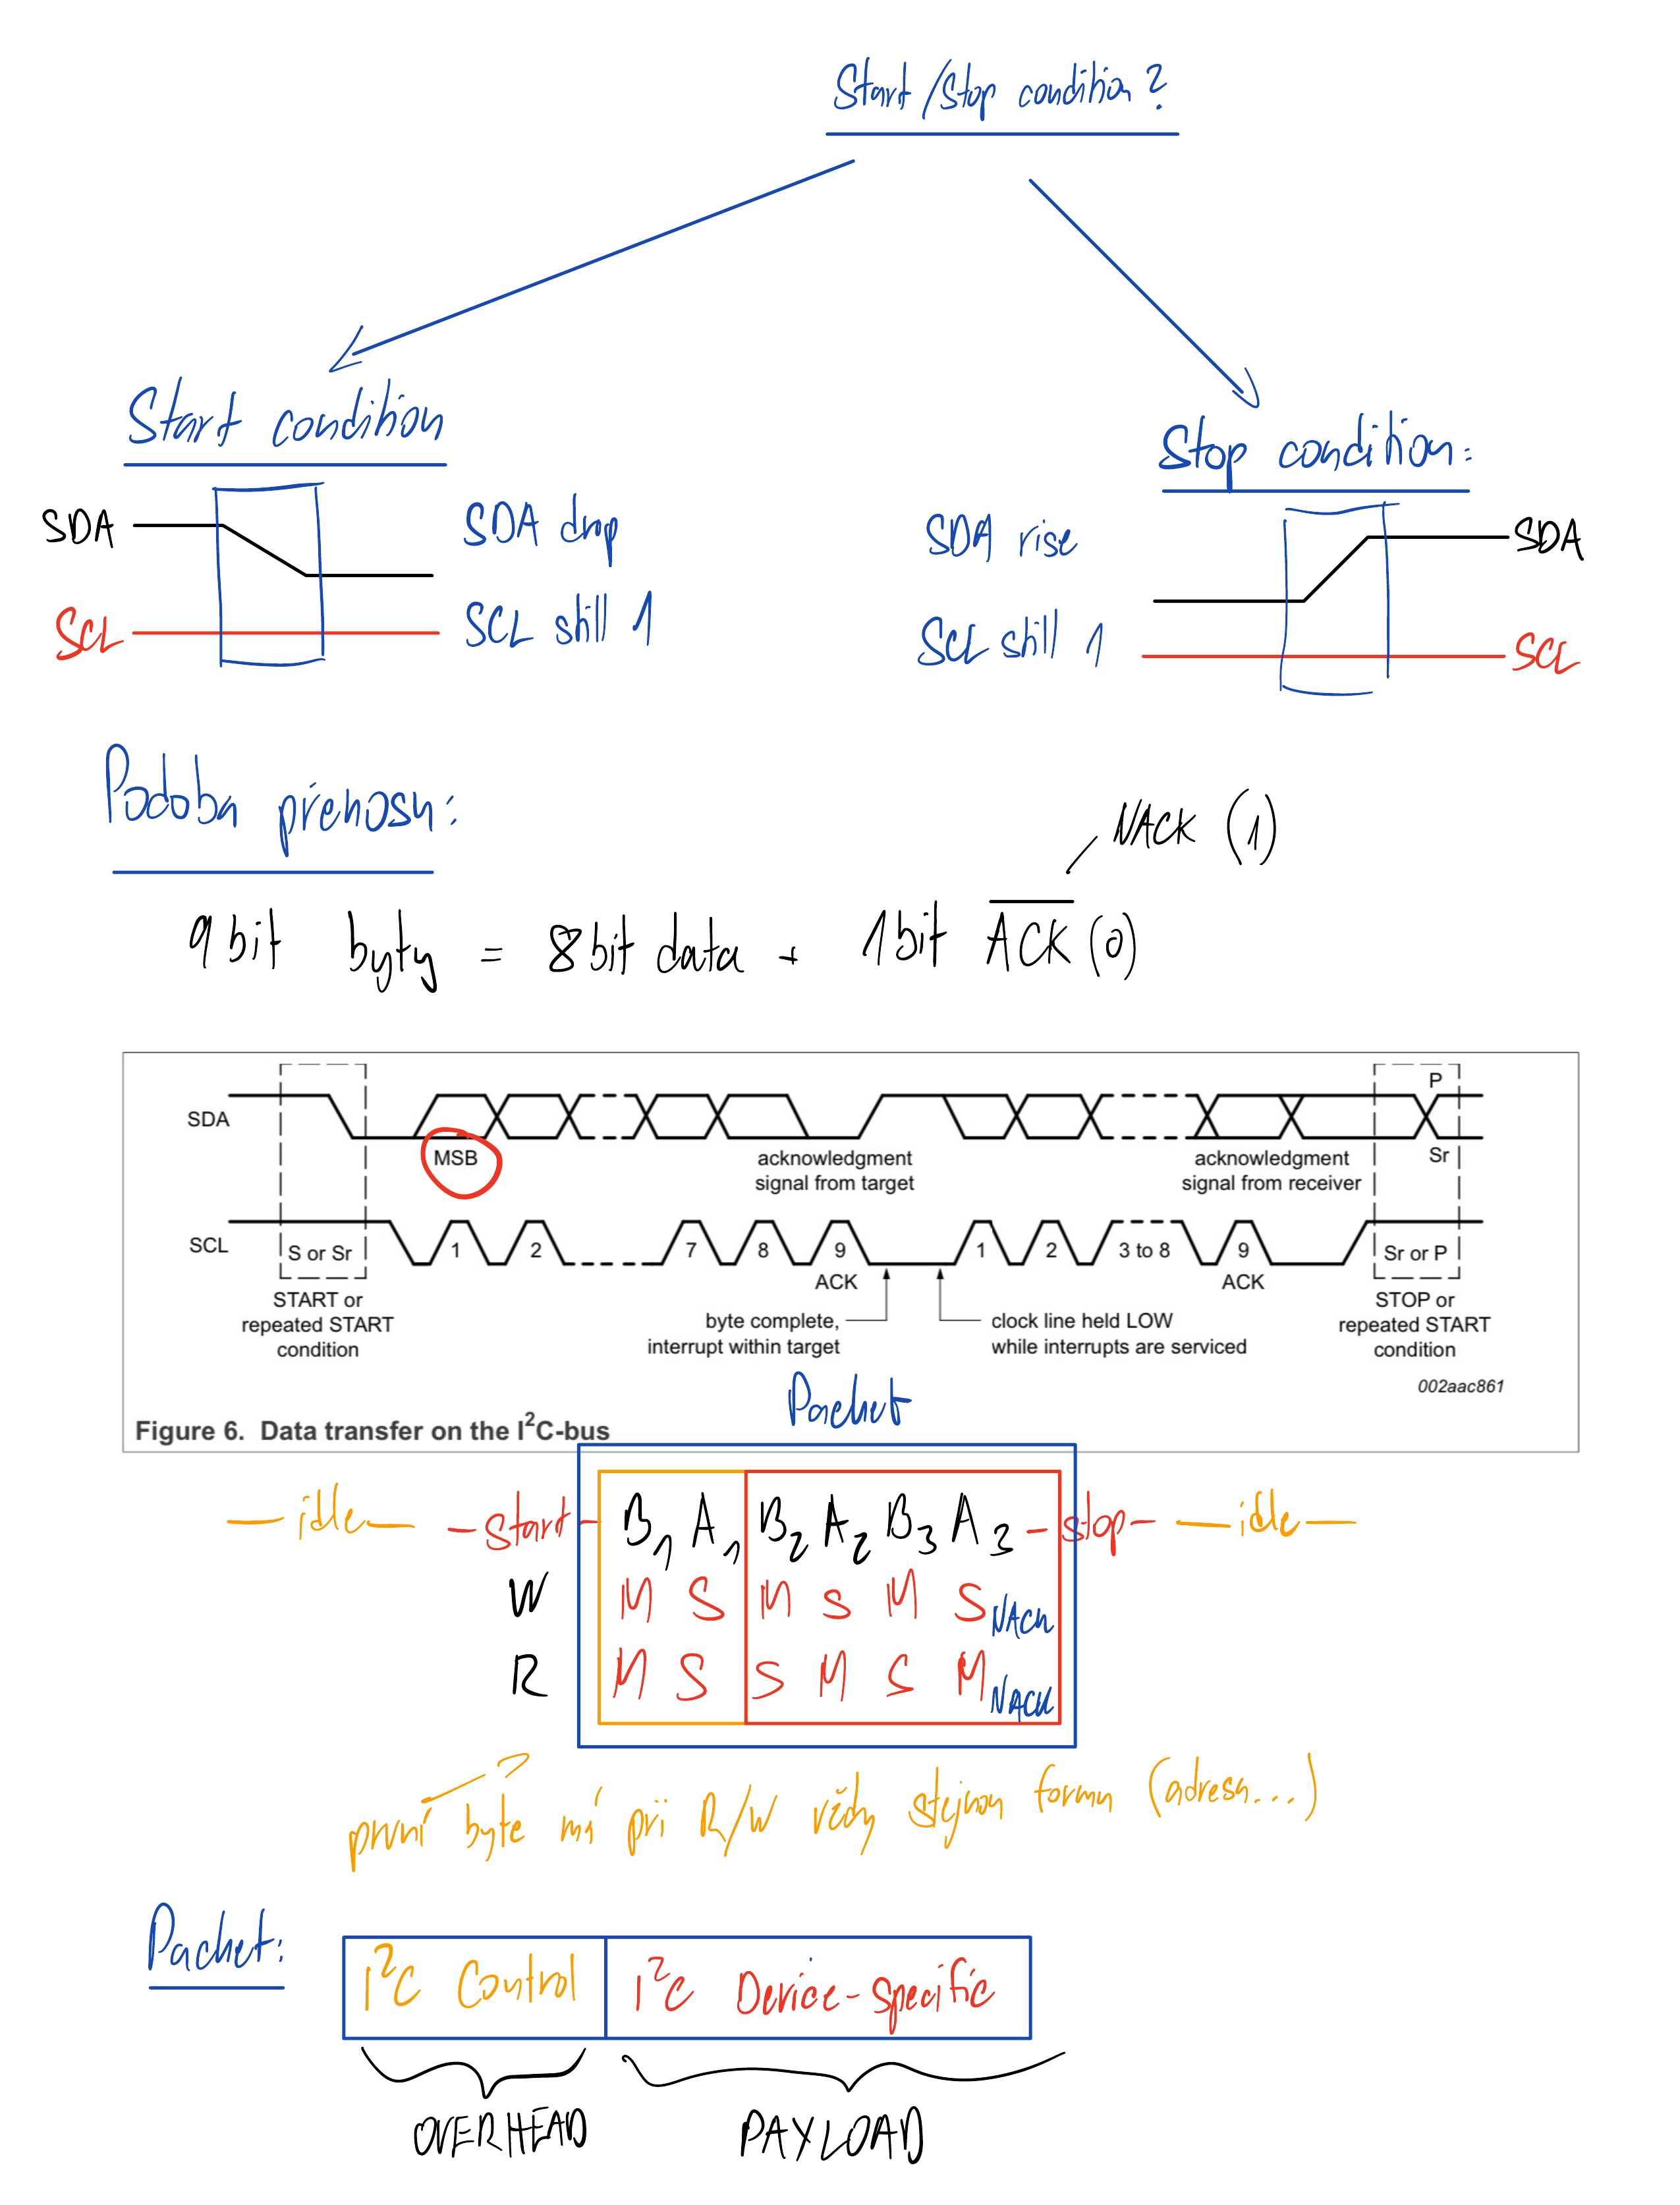 Start/Stop condition?
Start condition
Stop condition:
SDA
SDA drop
SDA rise
SDA
SCL
SCL still 1
SCL still 1
SCL
Podoba přenosu:
NACK (1)
9 bit byty = 8 bit data + 1 bit ACK (0)
P
SDA
MSB
acknowledgment
signal from target
acknowledgment
signal from receiver
Sr
SCL
S or Sr
1
2
7
8
9
1
2
3 to 8
9
Sr or P
ACK
ACK
START or
repeated START
condition
byte complete,
interrupt within target
clock line held LOW
while interrupts are serviced
STOP or
repeated START
condition
002aac861
Packet
Figure 6. Data transfer on the I²C-bus
— idle — - start - B₁ A₁ B₂ A₂ B₃ A₃ - stop - — idle —
W M S M S M S NACK
R M S S M S M NACK
první byte má při R/W vždy stejnou formu (adresu...)
Packet:
I²C Control
I²C Device-specific
OVERHEAD
PAYLOAD